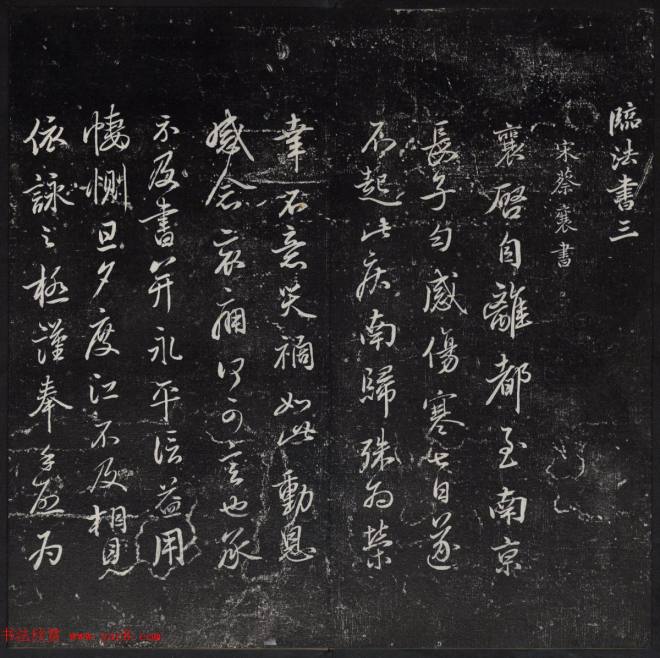 臨法書三
宋蔡襄書
襄啓自離都至南京
長子勻感傷寒七日遂
不起此疾南歸殊為榮
幸不意災禍如此動息
感念哀痛何可言也承
不及書并永平信益用
悽惻旦夕度江不及相見
依詠之極謹奉手啓為
书法欣赏 www.yac8.com